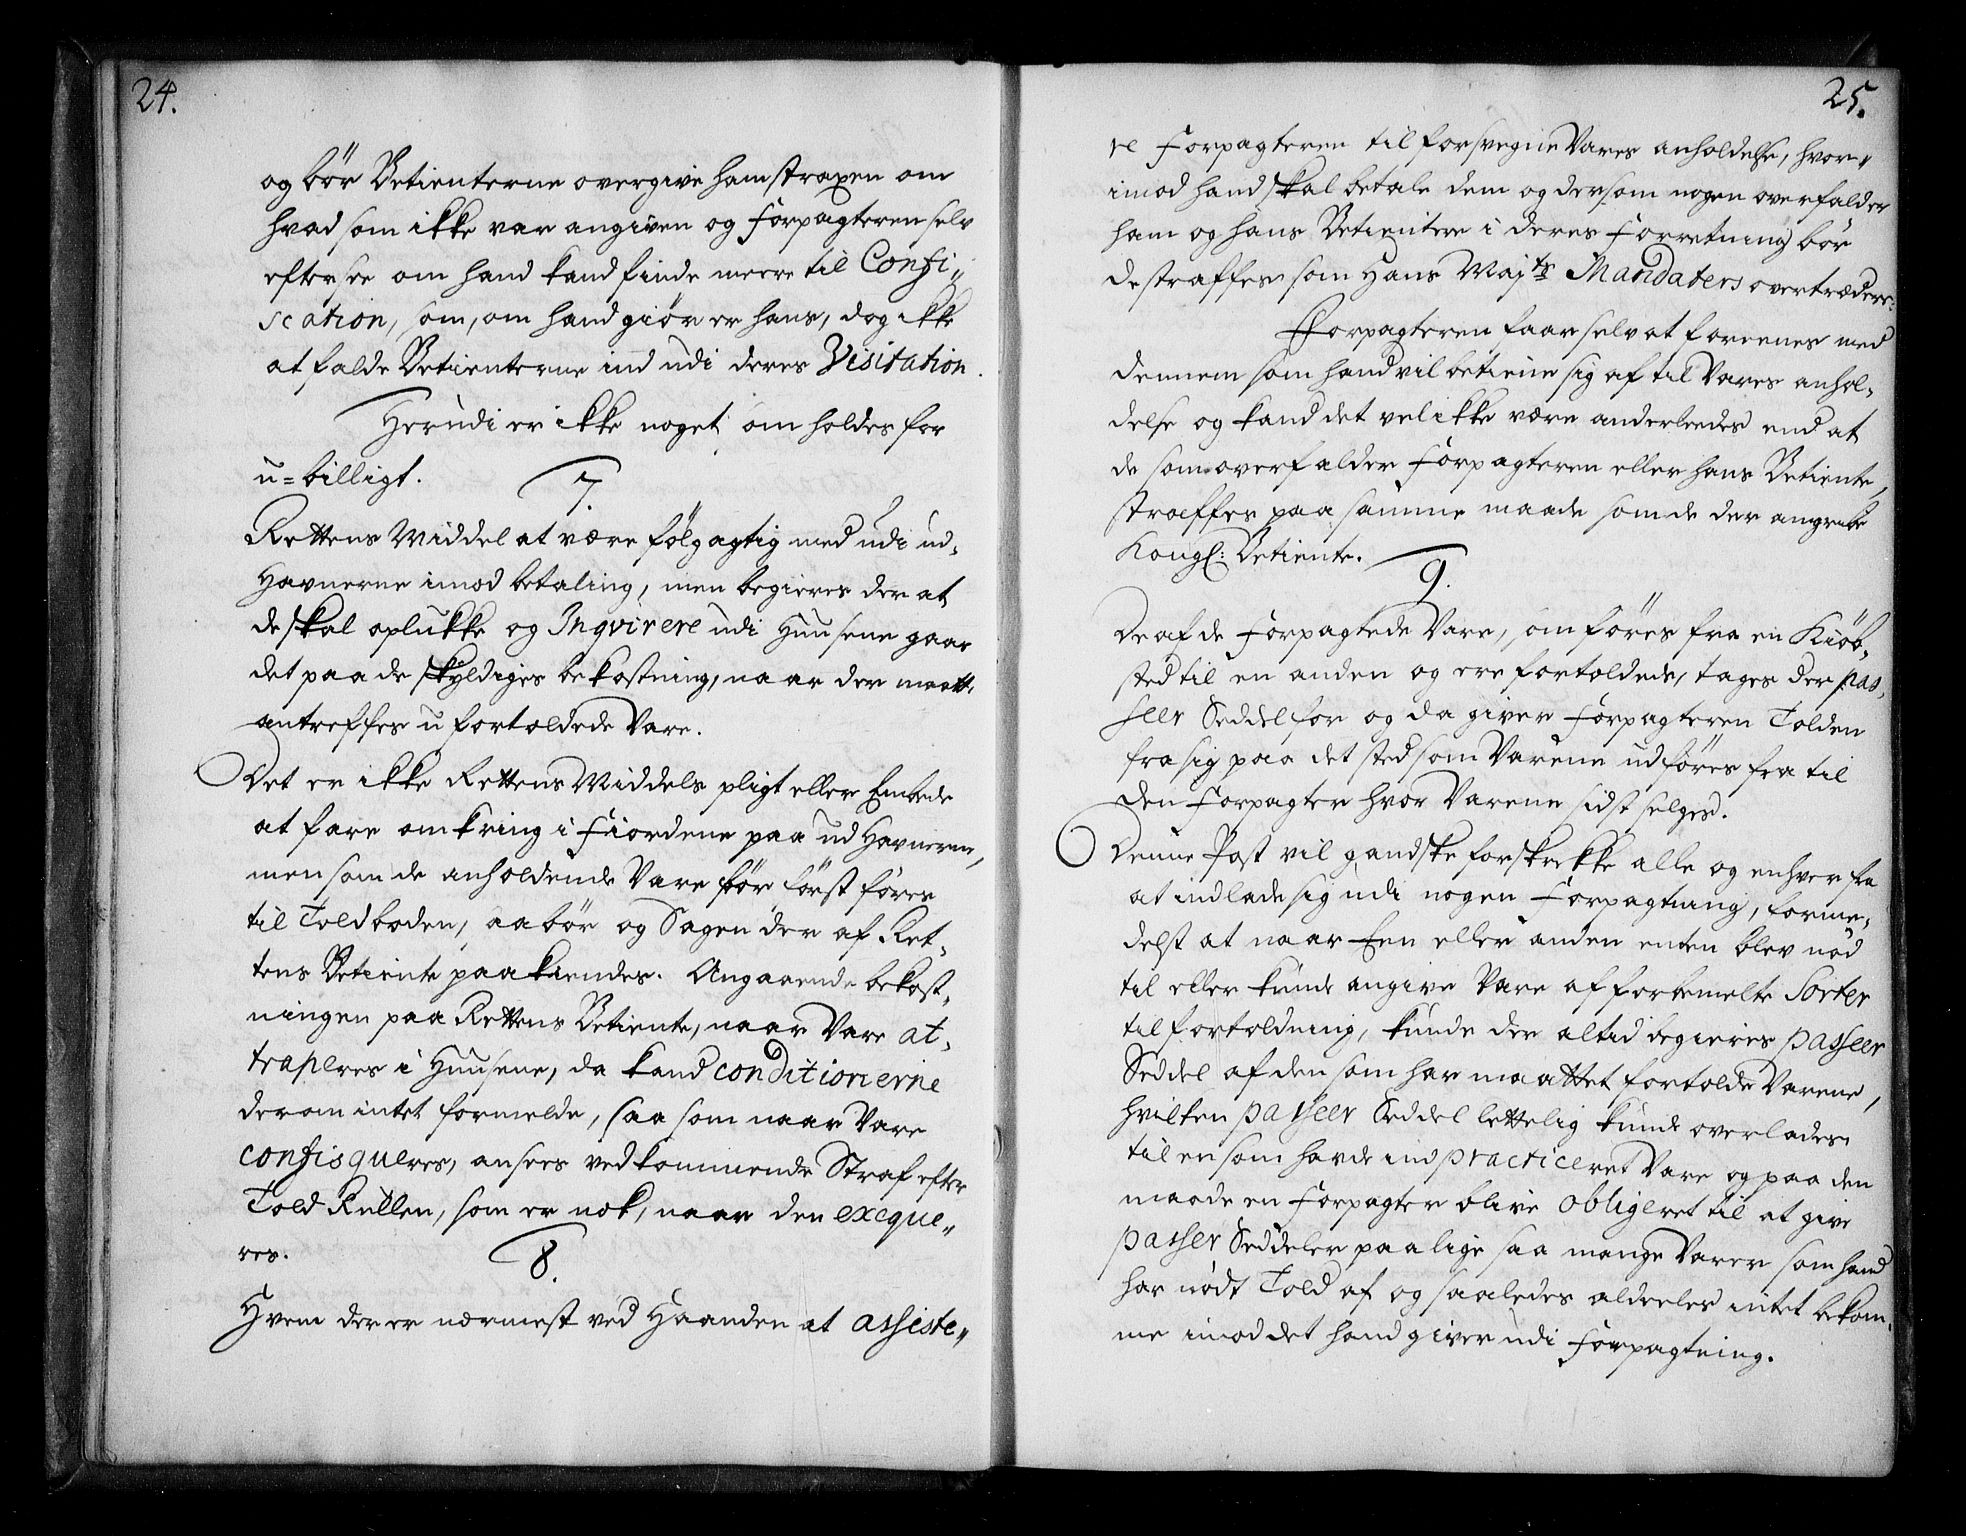 24.
og bör Betienterne overgive ham straxen om
hvad som ikke var angiven og Forpagteren selv
eftersee om hand kand finde meere til Confi„
scation, som, om hand giör er hans, dog ikke
at falde Betienterne ind udi deres Visitation.
Herudi er ikke noget om holdes for
u=billigt.
7.
Rettens Middel at være fölgagtig med udi ud„
Havnerne imod betaling, men begieres der at
de skal oplukke og Inqvirere udi Huusene gaar
det paa de skyldiges bekostning, naar der
antreffes ufortoldede Vare.
Det er ikke Rettens Middels pligt eller Embede
at fare omkring i Fiordene paa ud Havnerne,
men som de anholdende Vare bör först föres
til Toldboden, saa bör og Sagen der af Ret„
tens Betiente paakiendes. Angaaende bekost„
ningen paa Rettens Betiente, naar Vare at„
traperes i Huusene, da kand conditionerne
derom intet formelde, saa som naar Vare
confisqueres, ansees vedkommende Straf efter
Told Rullen, som er nok, naar den exeque„
res.
8.
Hvem der er nærmest ved Haanden at assiste„
25.
re Forpagteren til forsvegne Vares anholdelse, hvor„
imod hand skal betale dem og dersom nogen overfalder
ham og hans Betientere i deres Forretning bör
de straffes som Hans Majts Mandaters overtrædere.
Forpagteren faar selv at foreenes med
dennem som hand vil betiene sig af til Vares anhol„
delse og kand det vel ikke være anderleedes end at
de som overfalder Forpagteren eller hans Betiente,
straffes paa samme maade som de der angribe
Kongl: Betiente.
9.
De af de Forpagtede Vare, som föres fra en Kiöb„
sted til en anden og ere fortoldede, tages der pas„
seer Seddel for og da giver Forpagteren Tolden
fra sig paa det sted som Varene udföres fra til
den Forpagter hvor Varene sidst selges.
Denne Post vil gandske forskrekke alle og enhver fra
at indlade sig udi nogen Forpagtning, forme„
delst at naar Een eller anden enten blev nød
til eller kunde angive Vare af forbemelte Sorter
til fortoldning, kunde der altid begieres passeer
Seddel af den som har maattet fortolde Varene,
hvilken passeer Seddel lettelig kunde overlades
til en som havde indpracticeret Vare og paa den
maade en Forpagter blive obligeret til at give
passer Seddeler paa lige saa mange Varer som hand
har nödt Told af og saaledes aldeeles intet bekom„
me imod det hand giver udi Forpagtning.